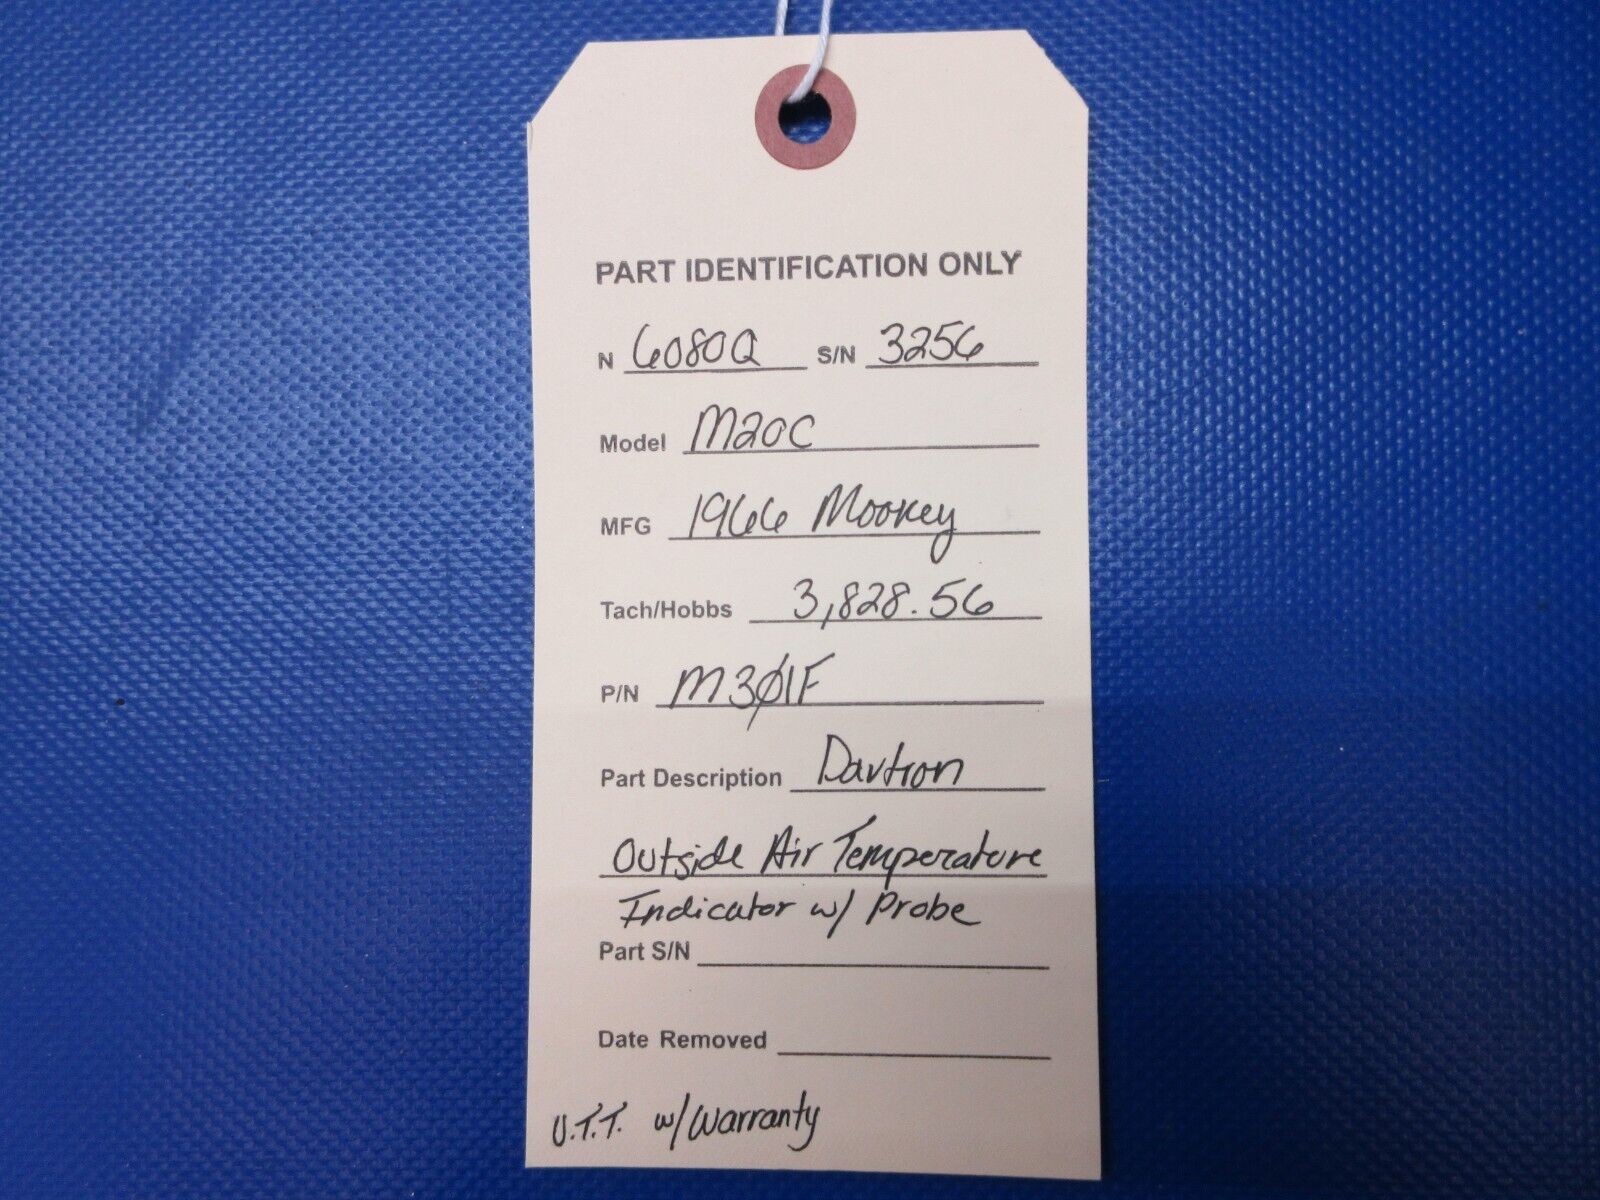 PART IDENTIFICATION ONLY
N 6080Q S/N 3256
Model M20C
MFG 1966 Mooney
Tach/Hobbs 3,828.56
P/N M3Ø1F
Part Description Davtron
Outside Air Temperature
Indicator w/ Probe
Part S/N
Date Removed
U.T.T. w/ Warranty